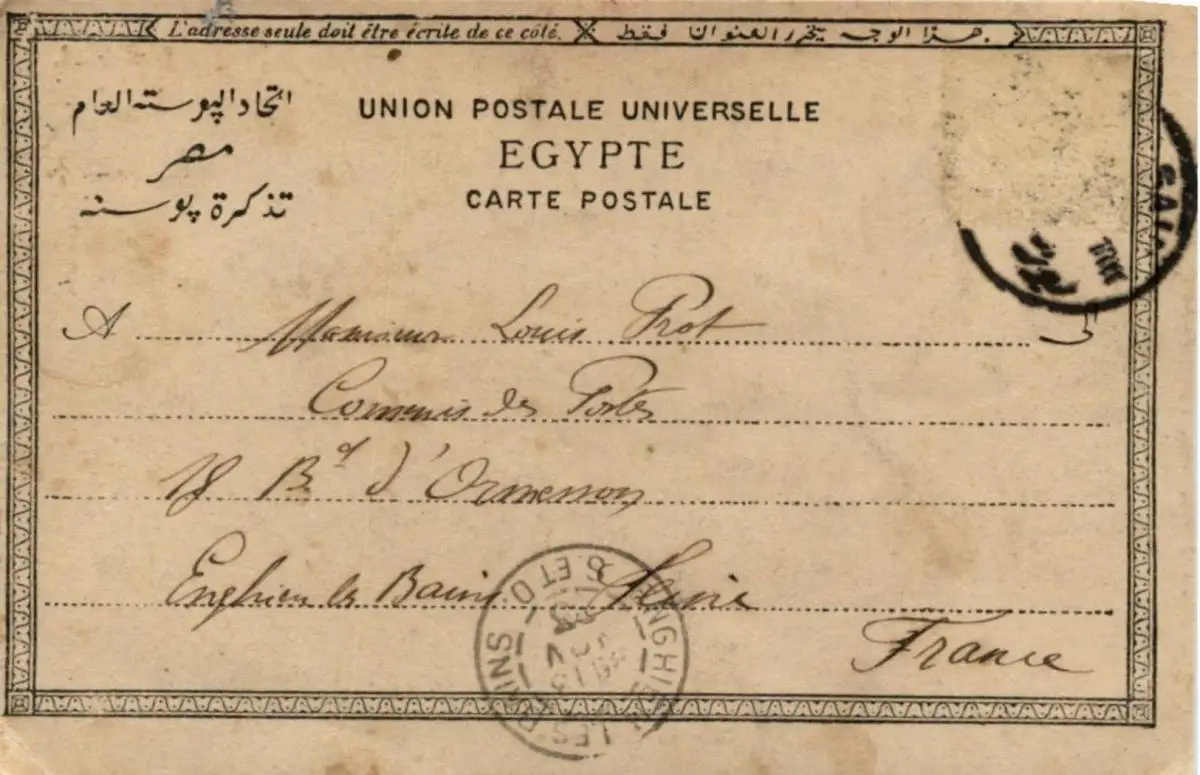 L'adresse seule doit être écrite de ce côté.
هذا الوجه يتحرر العنوان فقط.
اتحاد الپوسته العام
مصر
تذكرة پوسته
UNION POSTALE UNIVERSELLE
EGYPTE
CARTE POSTALE
CAI
A Monsieur Louis Prot
Commis des Postes
18 Bd d'Ormesson
Enghien les Bains Seine
France
ENGHIEN LES BAINS
S. ET O.